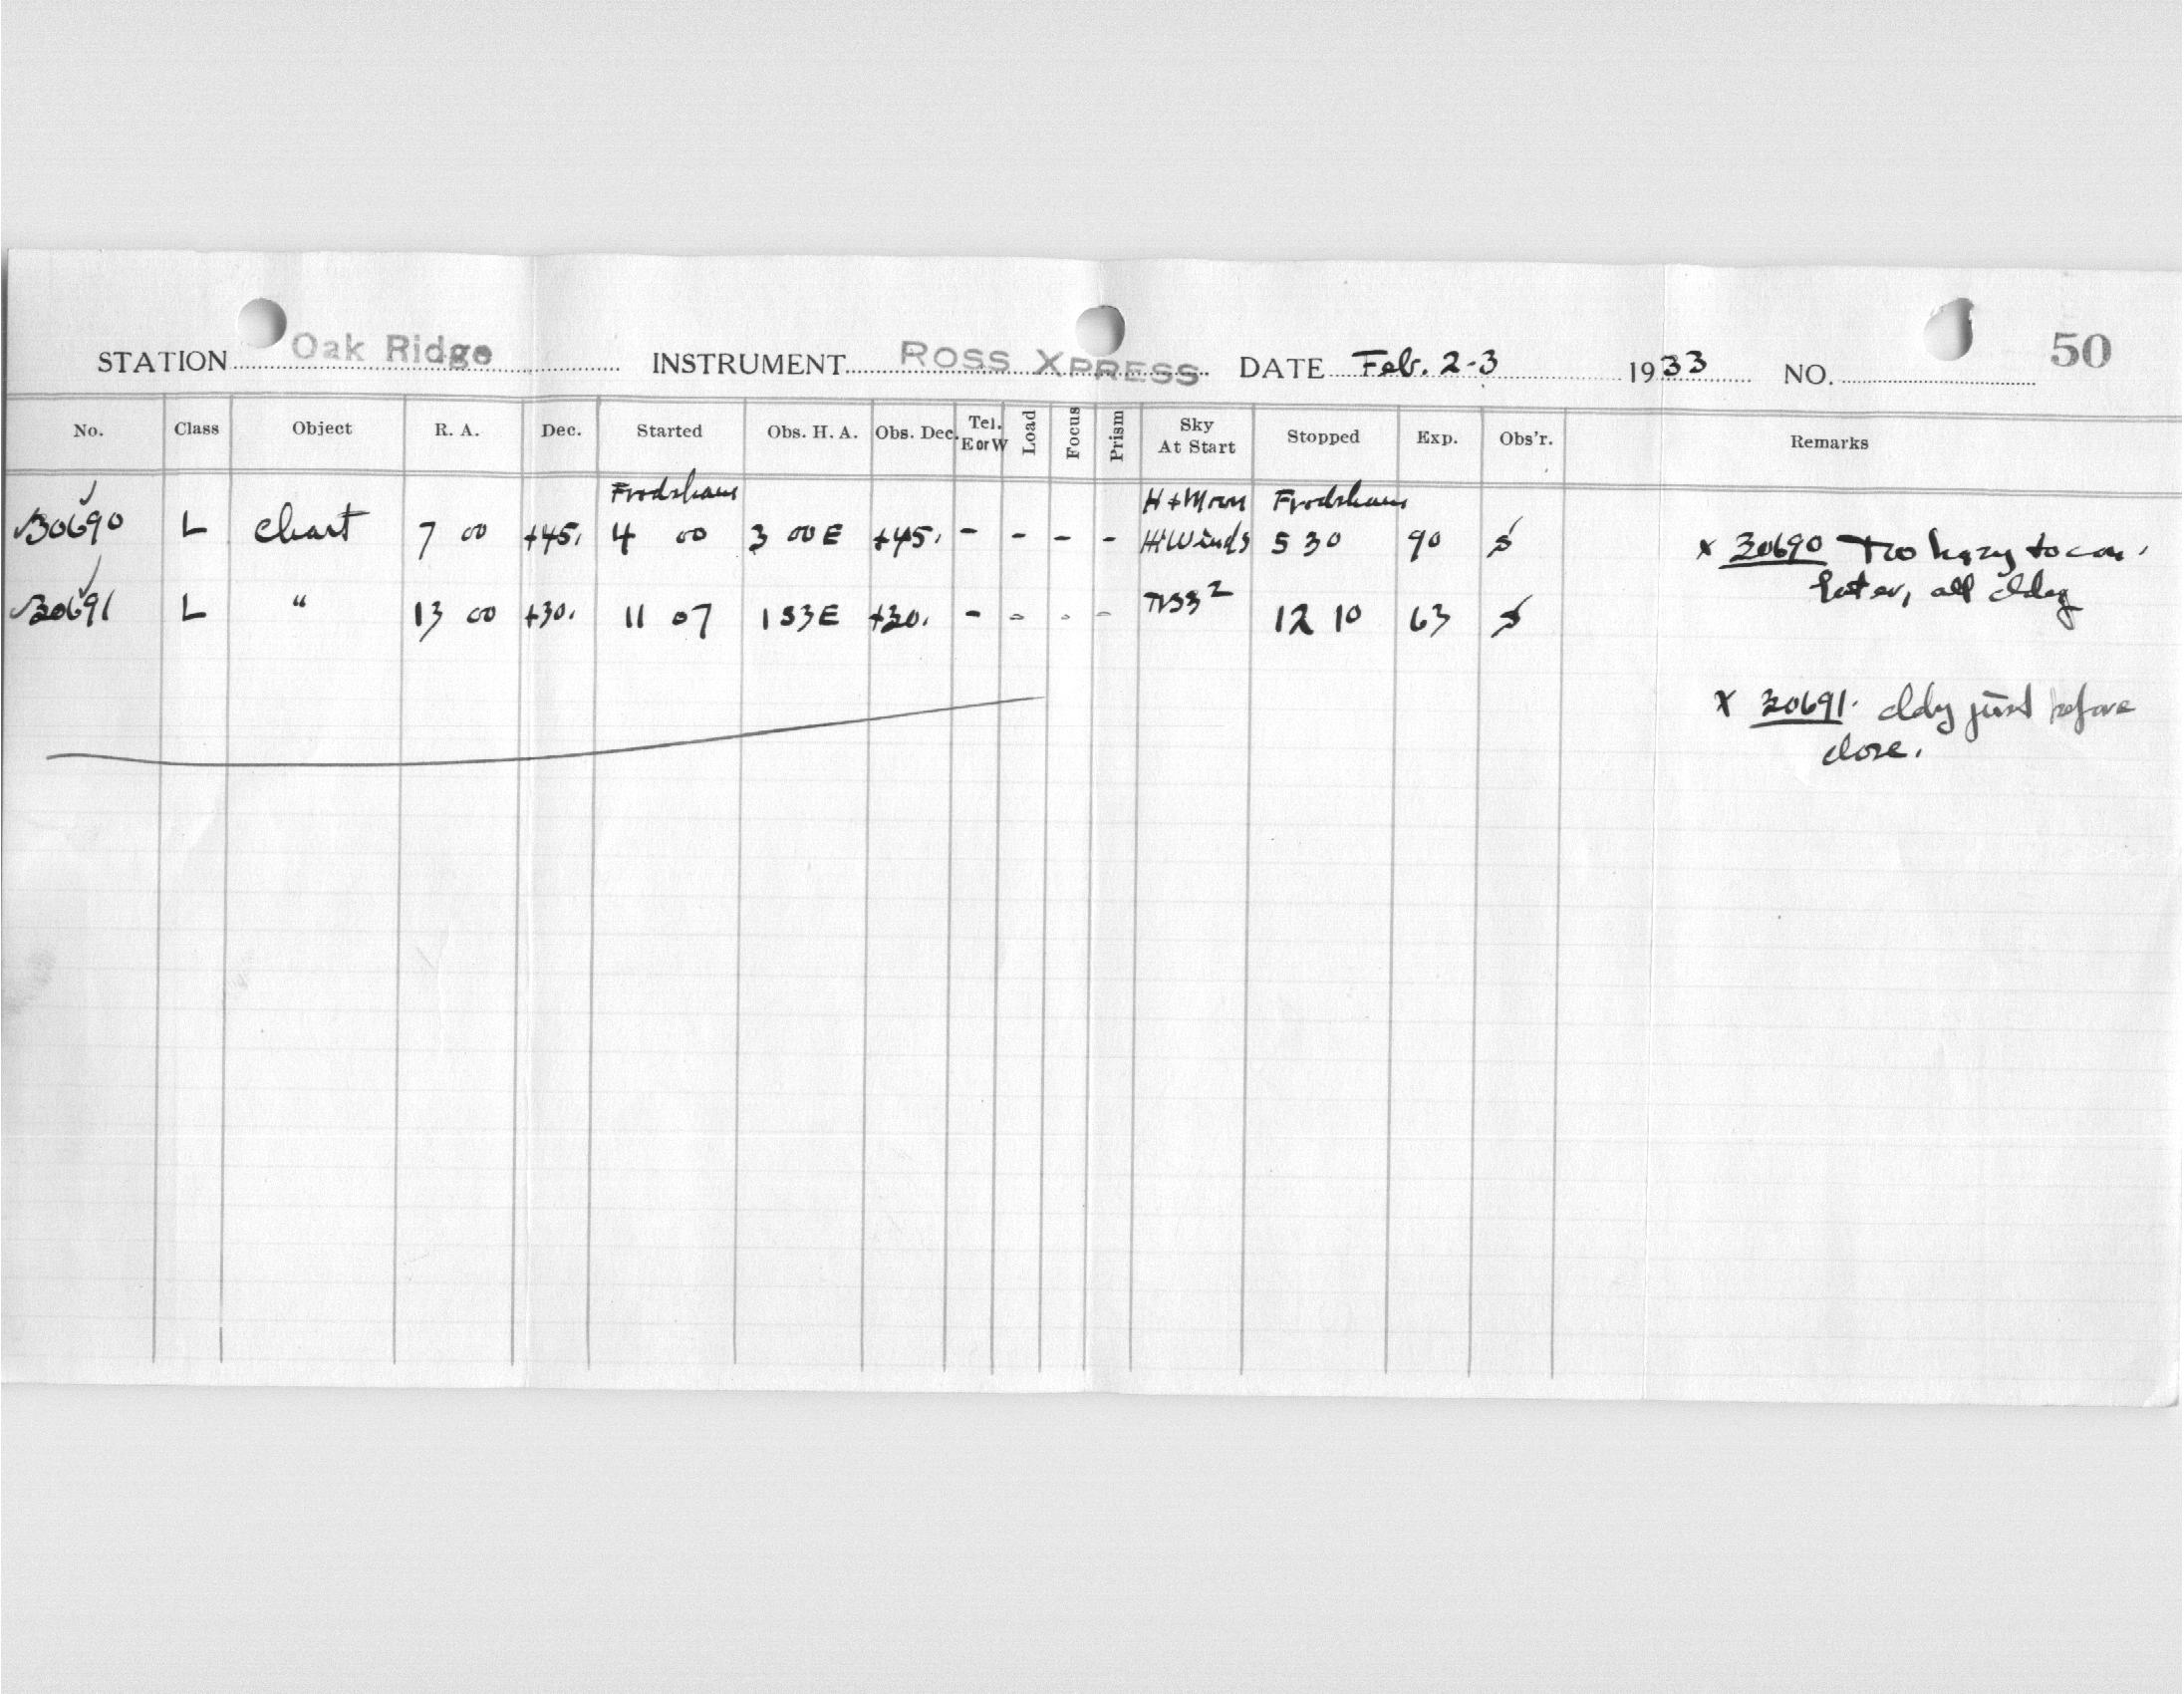 STATION Oak Ridge INSTRUMENT ROSS XPRESS DATE Feb. 2-3 1933 NO. 50
No. Class Object R. A. Dec. Started Obs. H. A. Obs. Dec. Tel. E or W Load Focus Prism Sky At Start Stopped Exp. Obs'r. Remarks
Frodsham H + Moon Frodsham
√30690 L Chart 7 00 +45. 4 00 3 00 E +45. - - - - Winds 5 30 90 x 30690 Too hazy to con.
Later, all cldy
√30691 L " 13 00 +30. 11 07 1 53 E +30. - - - - 12 10 63
x 30691. cldy just before
close.